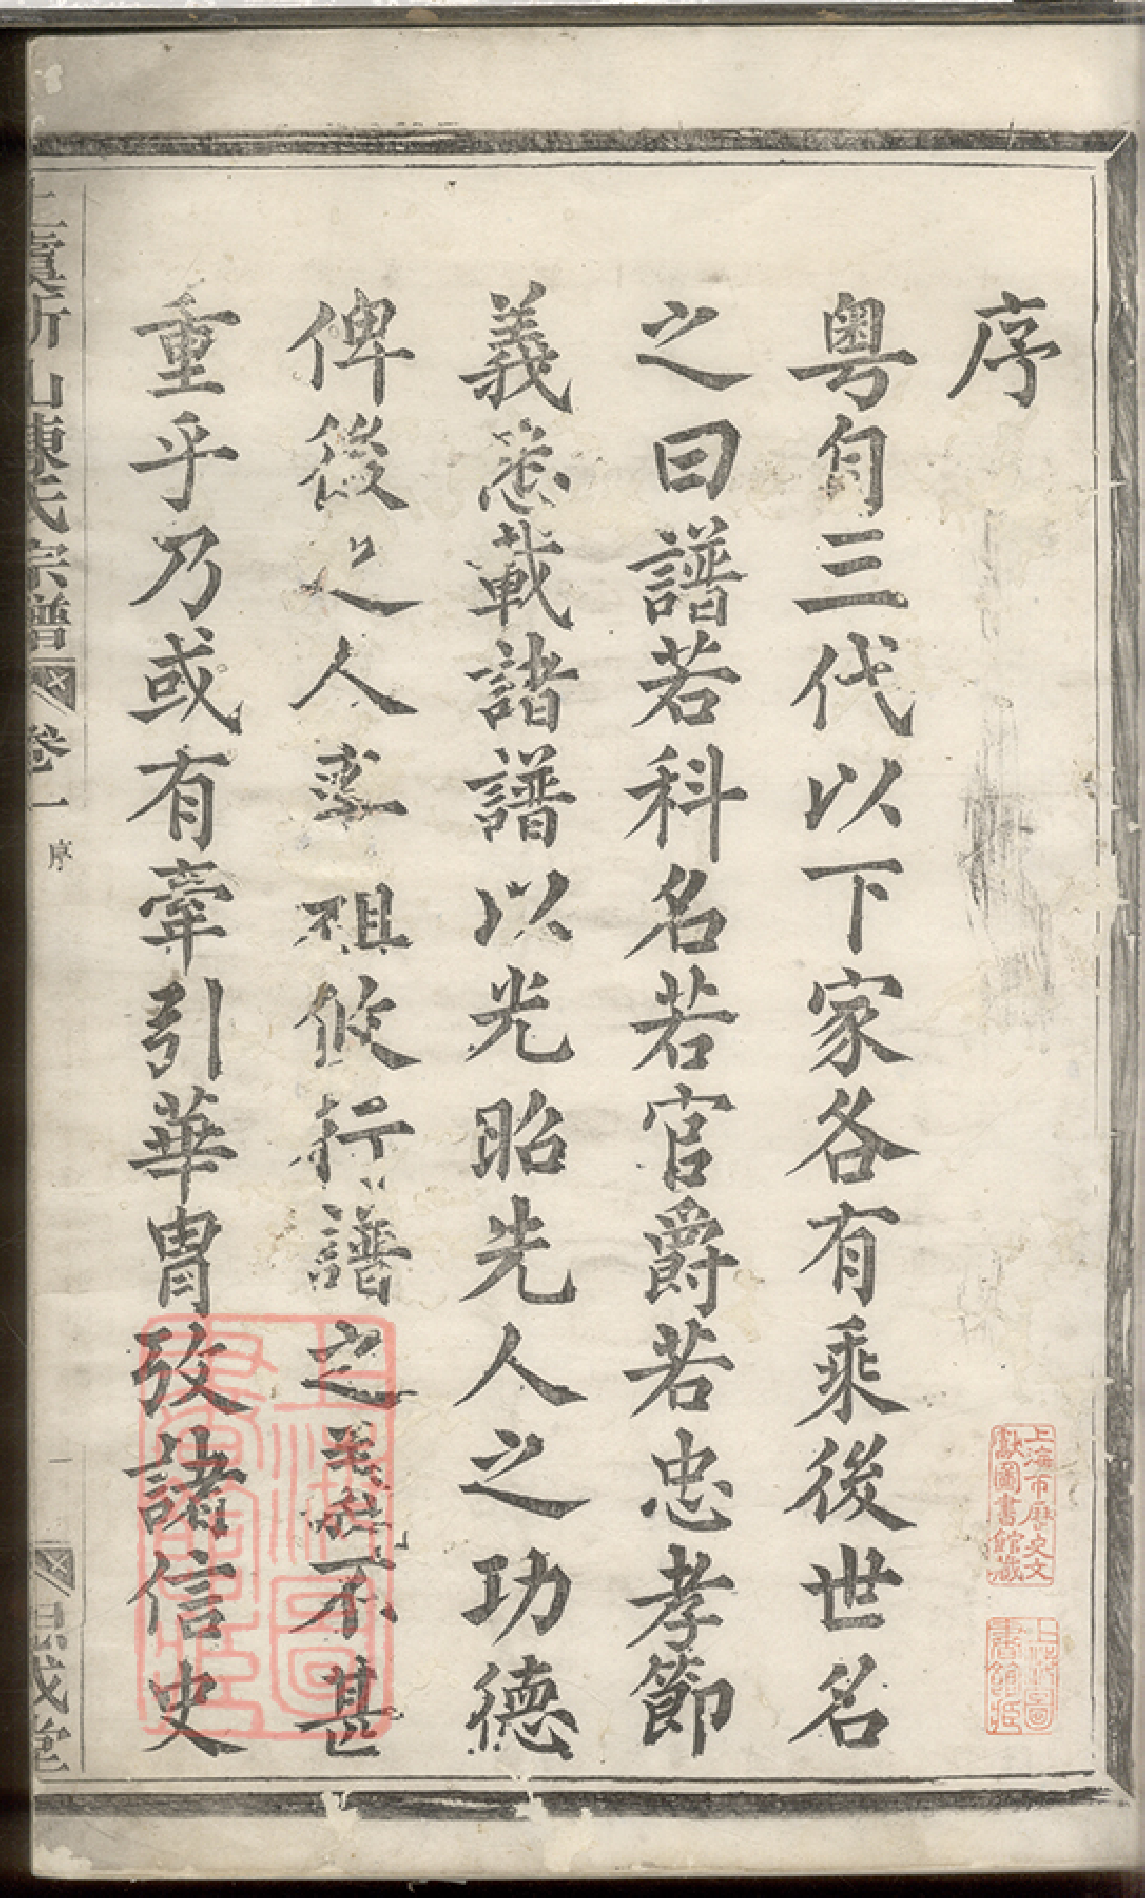 序
粤自三代以下家各有乘後世名
之曰譜若科名若官爵若忠孝節
義悉載諸譜以光昭先人之功德
俾後之人率祖攸行譜之不甚
重乎乃或有牽引華胄攷諸信史
上虞新山陳氏宗譜
卷一
序
一
思成堂
上海市歷史文
獻圖書館藏
上海圖
書館藏